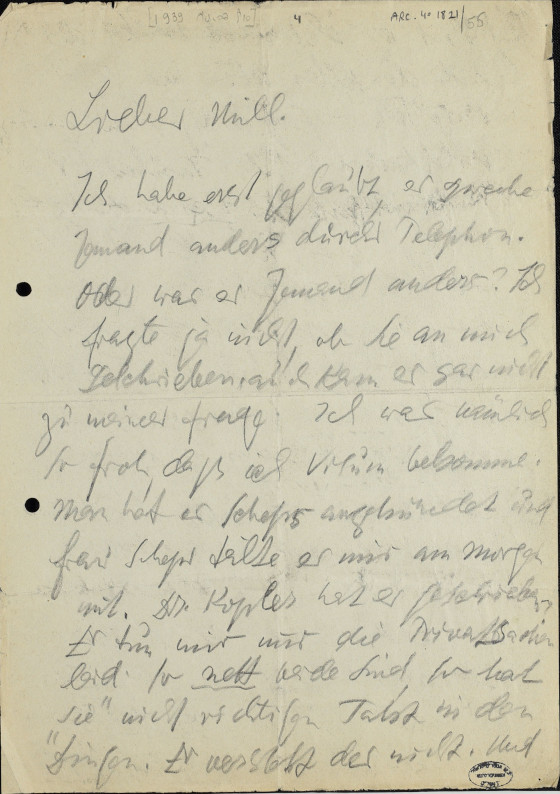 4 ARC. 4° 1821/55
Lieber Will.
Ich habe erst geglaubt, er spreche
Jemand anders durch Telephon.
Oder war es Jemand anders? Ich
fragte ja nicht, ob Sie an mich
geschrieben, auch kam er gar nicht
zu meiner Frage. Ich war nämlich
so froh, daß ich Visum bekomme.
Man hat es Scheps angekündet und
frau Scheps teilte es mir am Morgen
mit. Dr. Kopler hat es geschrieben.
Es tun mir nur die Privatsachen
leid. So nett beide sind, so hat
"sie" nicht richtigen Takt in den
Dingen. Er versteht der nicht. Und